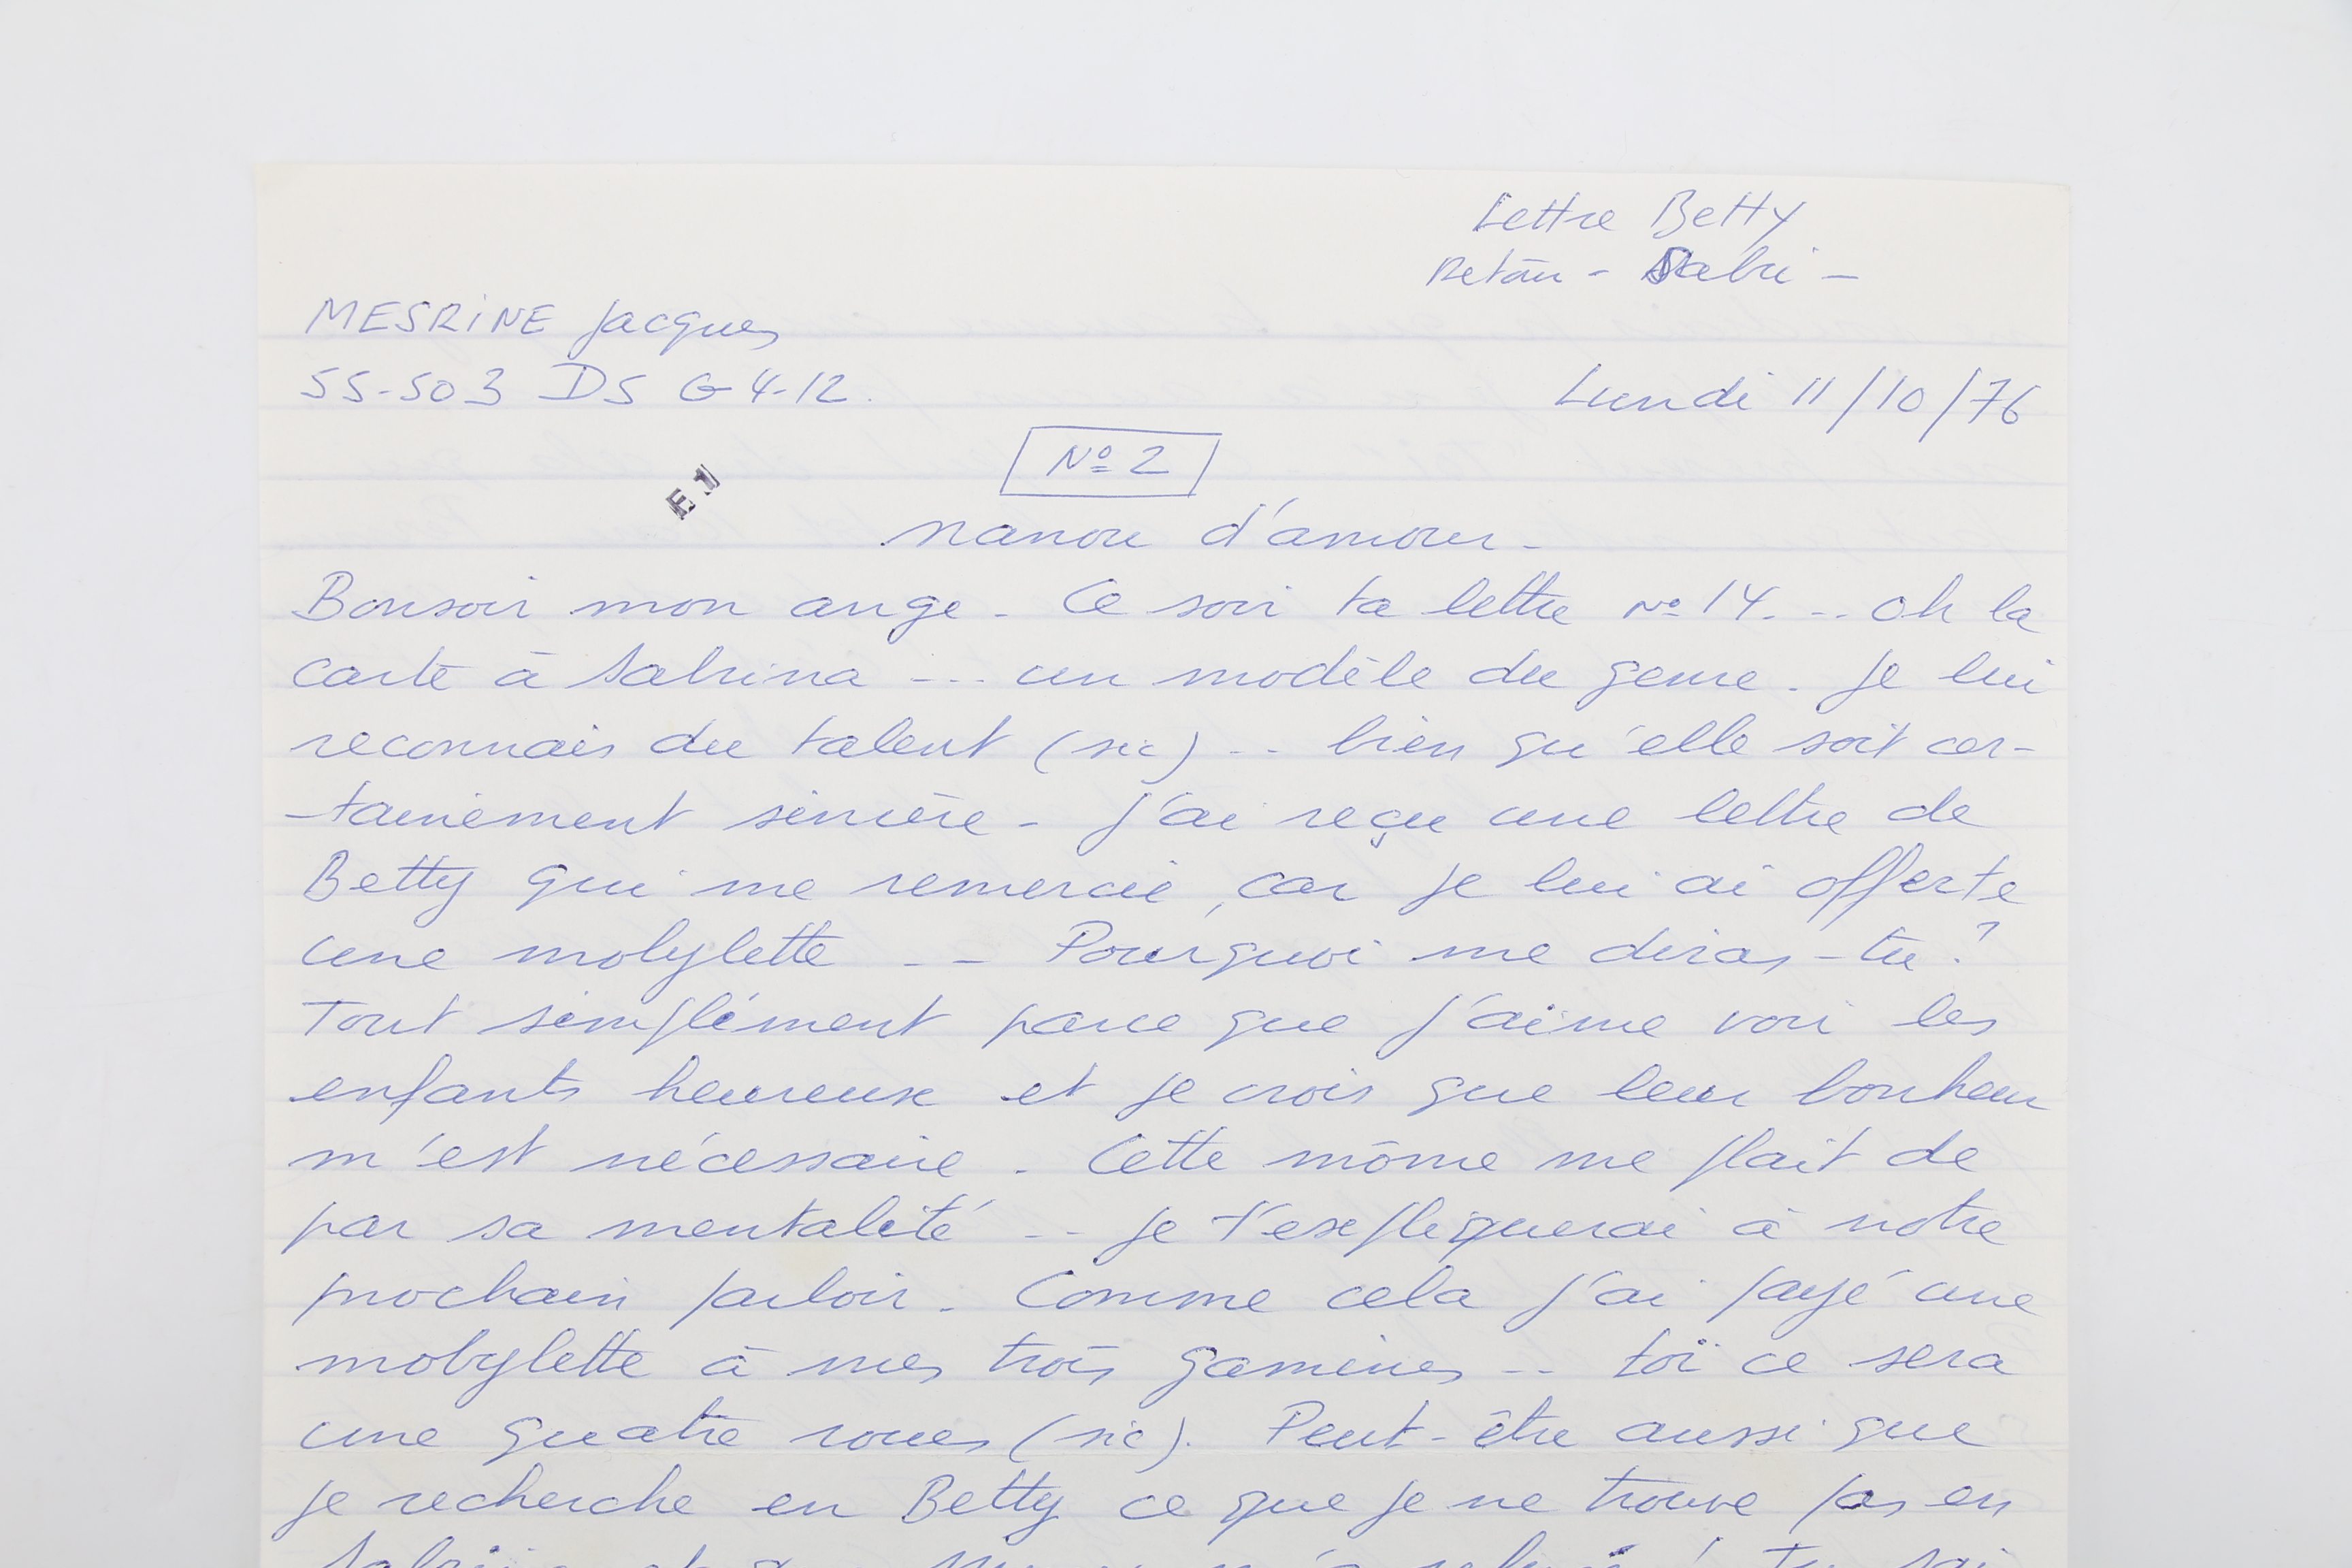 Lettre Betty
Retour - Sabri -
MESRINE Jacques
55-503 D5 G 4-12.
Lundi 11/10/76
N° 2
E 1
nanou d'amour -
Bonsoir mon ange - Ce soir ta lettre N° 14. -- oh la
carte à Sabrina --- un modèle du genre. Je lui
reconnais du talent (sic) -- bien qu'elle soit cer-
-tainement sincère - J'ai reçu une lettre de
Betty qui me remercie, car je lui ai offerte
une mobylette -- Pourquoi me diras-tu ?
Tout simplement parce que j'aime voir les
enfants heureux et je crois que leur bonheur
m'est nécessaire. Cette môme me plait de
par sa mentalité -- Je t'expliquerai à notre
prochain parloir. Comme cela j'ai payé une
mobylette à mes trois gamines -- toi ce sera
une quatre roues (sic). Peut-être aussi que
je recherche en Betty ce que je ne trouve pas en